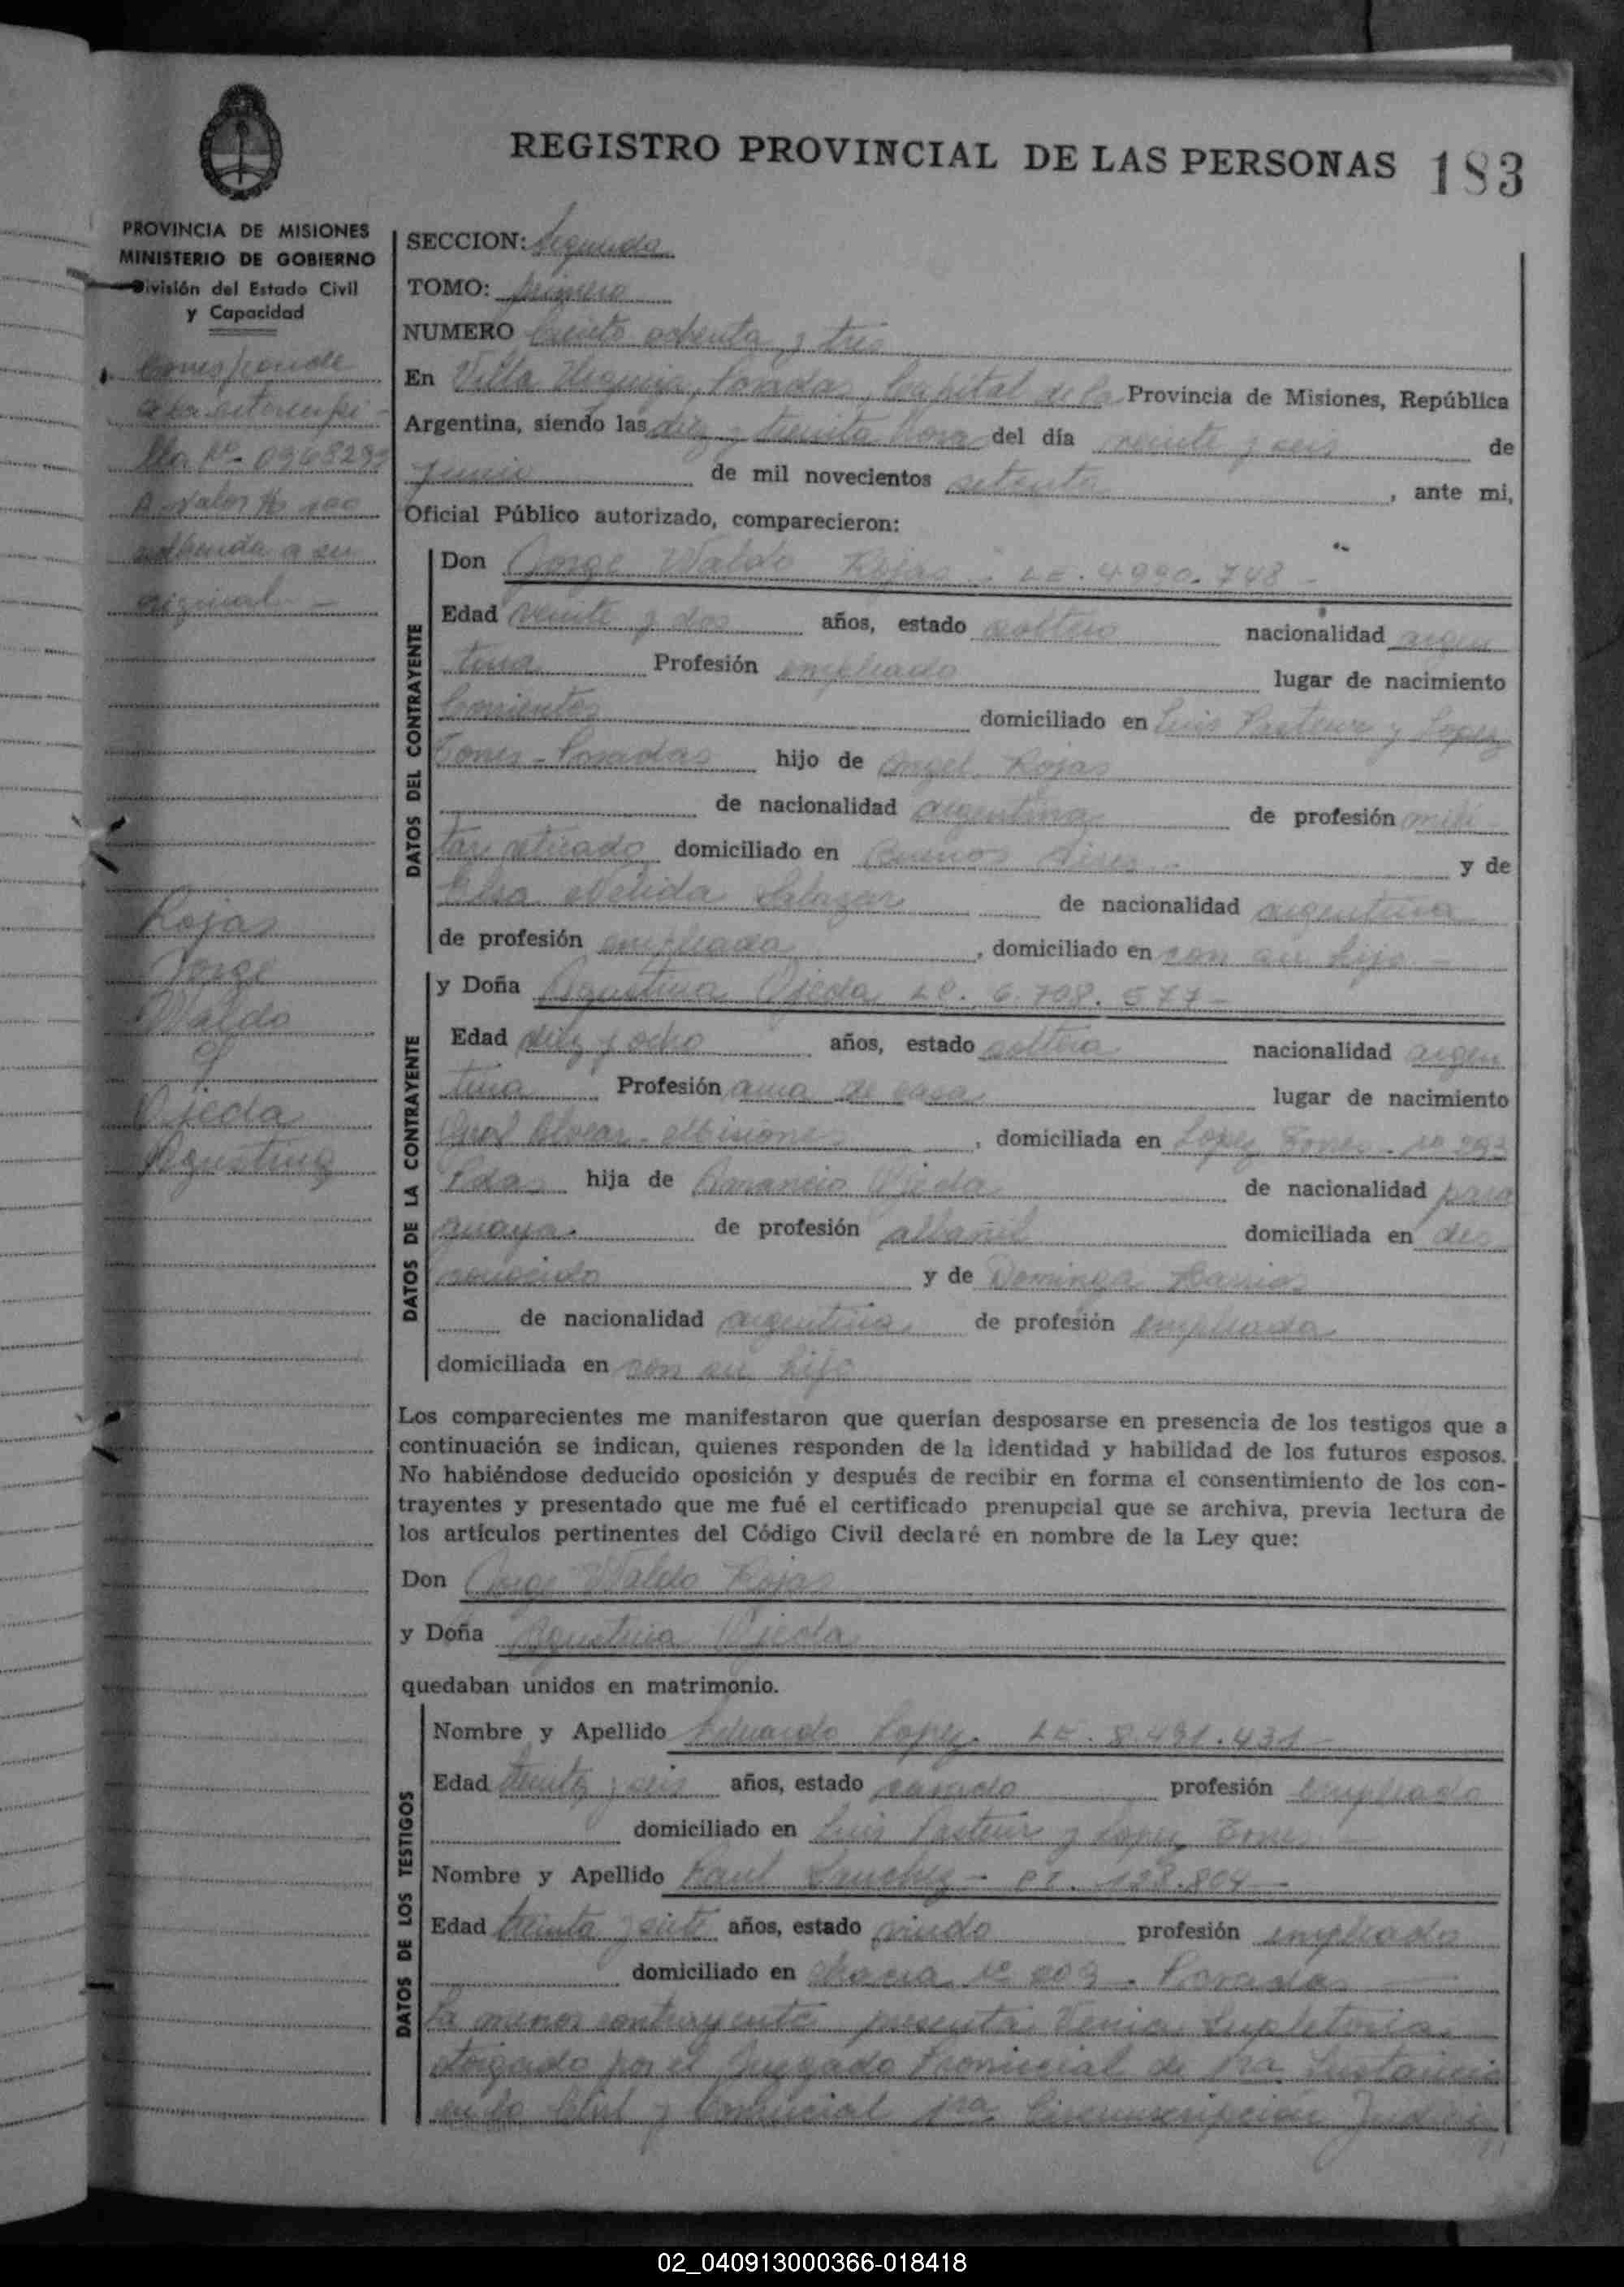 REGISTRO PROVINCIAL DE LAS PERSONAS 183
PROVINCIA DE MISIONES
MINISTERIO DE GOBIERNO
División del Estado Civil
y Capacidad
Corresponde
a la estampi-
lla Nº 0968299
A valor $ 100
adherida a su
original -
Rojas
Jorge
Waldo
y
Ojeda
Agustina
SECCION: Segunda
TOMO: primero
NUMERO Ciento ochenta y tres
En Villa Urquiza, Posadas, Capital de la Provincia de Misiones, República
Argentina, siendo las diez y treinta horas del día veinte y seis de
junio de mil novecientos setenta, ante mi,
Oficial Público autorizado, comparecieron:
DATOS DEL CONTRAYENTE
Don Jorge Waldo Rojas - LE. 4990.748 -
Edad veinte y dos años, estado soltero nacionalidad argen
tina Profesión empleado lugar de nacimiento
Corrientes domiciliado en Luis Pasteur y Lopez
Torres - Posadas hijo de Angel Rojas
de nacionalidad argentina de profesión mili-
tar retirado domiciliado en Buenos Aires - y de
Elsa Nelida Salazar de nacionalidad argentina
de profesión empleada, domiciliado en con su hijo -
DATOS DE LA CONTRAYENTE
y Doña Agustina Ojeda LC. 6.708.577 -
Edad diez y ocho años, estado soltera nacionalidad argen
tina Profesión ama de casa lugar de nacimiento
Gral Alvear - Misiones, domiciliada en Lopez Torres - Nº 293
Pdas hija de Ojeda de nacionalidad para
guaya. de profesión albañil domiciliada en des
conocido y de Dominga Barrios
de nacionalidad argentina de profesión empleada
domiciliada en con su hija
Los comparecientes me manifestaron que querían desposarse en presencia de los testigos que a
continuación se indican, quienes responden de la identidad y habilidad de los futuros esposos.
No habiéndose deducido oposición y después de recibir en forma el consentimiento de los con-
trayentes y presentado que me fué el certificado prenupcial que se archiva, previa lectura de
los artículos pertinentes del Código Civil declaré en nombre de la Ley que:
Don Jorge Waldo Rojas
y Doña Agustina Ojeda
quedaban unidos en matrimonio.
DATOS DE LOS TESTIGOS
Nombre y Apellido Eduardo Lopez. LE. 8.491.431 -
Edad treinta y seis años, estado casado profesión empleado
domiciliado en Luis Pasteur y Lopez Torres -
Nombre y Apellido Raul Sanchez - CI. 128.804 -
Edad treinta y siete años, estado viudo profesión empleado
domiciliado en Nº 209 - Posadas
La menor contrayente presenta Venia Supletoria
otorgado por el Juzgado Provincial de 1ra Instancia
en lo Civil y Comercial 1ra Circunscripción Judici
02_040913000366-018418